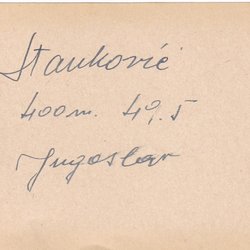 Stanković
400m. 49.5
Jugoslav